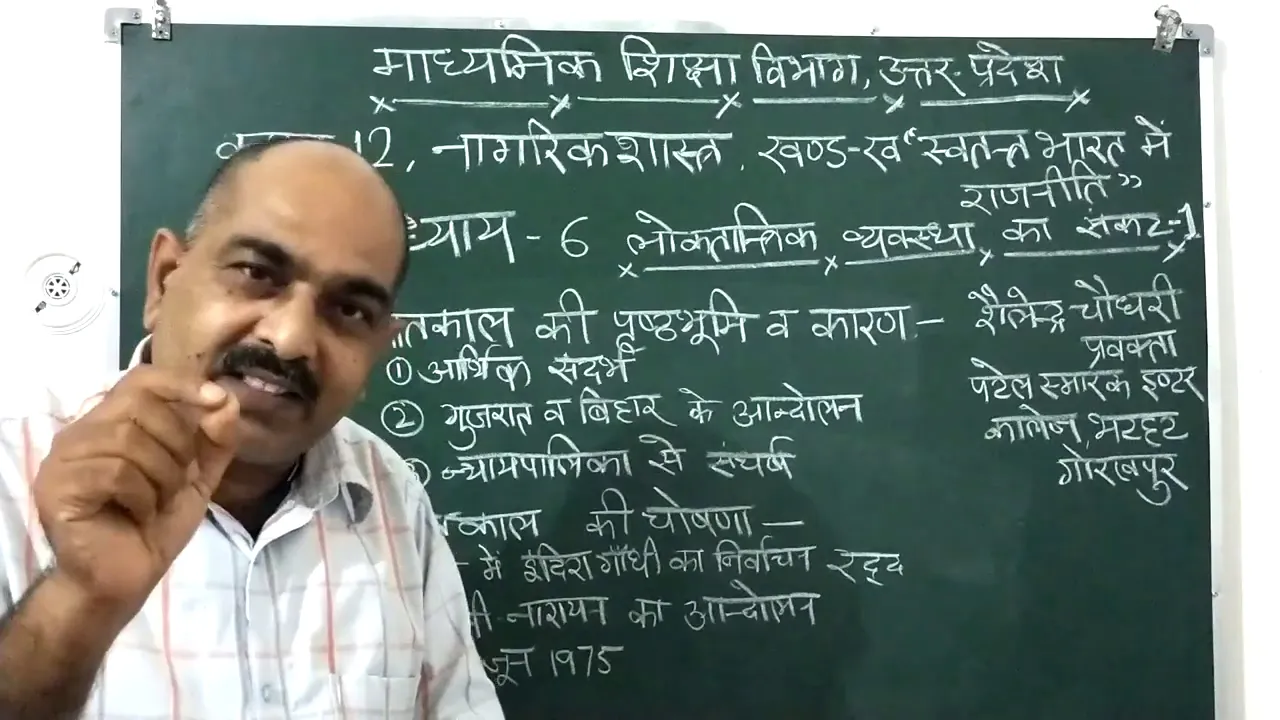 माध्यमिक शिक्षा विभाग, उत्तर-प्रदेश
12, नागरिक शास्त्र, खण्ड-ख "स्वतन्त्र भारत में
राजनीति"
- 6 लोकतान्त्रिक व्यवस्था का संकट-1
की पृष्ठभूमि व कारण -
① आर्थिक संदर्भ
② गुजरात व बिहार के आन्दोलन
न्यायपालिका से संघर्ष
की घोषणा -
- में इंदिरा गाँधी का निर्वाचन रद्द
नारायन का आन्दोलन
जून 1975
शैलेन्द्र चौधरी
प्रवक्ता
पटेल स्मारक इण्टर
कालेज, भटहट
गोरखपुर